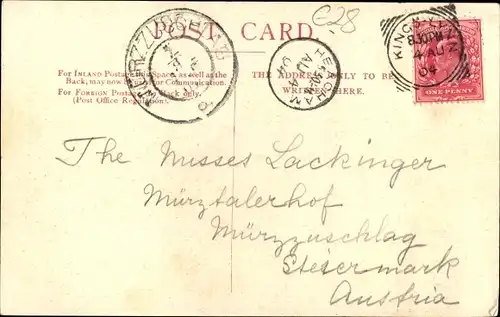 €28
POST CARD.
For INLAND Postage this Space, as well as the
Back, may now be used for Communication.
For FOREIGN Postage the Back only.
(Post Office Regulations.)
THE ADDRESS ONLY TO BE
WRITTEN HERE.
HEACHAM
AU
04
8.30PM
AU
04
ONE PENNY
The Misses Lackinger
Mürztalerhof
Mürzzuschlag
Steiermark
Austria